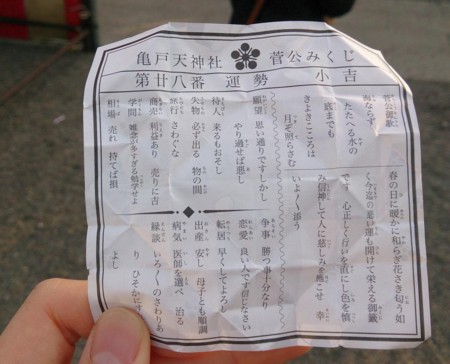 亀戸天神社 菅公みくじ
第廿八番 運勢 小吉
菅公御歌
海ならず
たたへる水の
底までも
きよきこころは
月ぞ照らさむ
春の日に暖かに和らぎ花さき匂う如
く今迄の悪い運も開けて栄える御籤
です 心正しく行いを直にし色を慎
み信神して人に慈しみを施こせ 幸
いよ〱添う
願望 思い通りですしかし
やり過せば悪し
待人 来るもおそし
失物 必ず出る 物の間
旅行 さわぐな
商売 利益あり 売りに吉
学問 雑念が多すぎる勉学せよ
相場 売れ 持てば損
争事 勝つ事十分なり
恋愛 良い人です信じなさい
転居 早くしてよろし
出産 安し 母子とも順調
病気 医師を選べ 治る
縁談 いろ〱のさわりあ
り ひそかに
よし